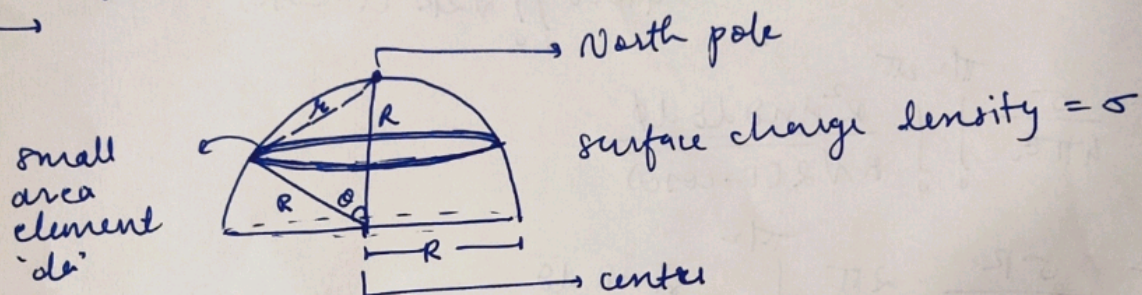 North pole
r
R
surface charge density = σ
small
area
element
'da'
R
θ
R
center